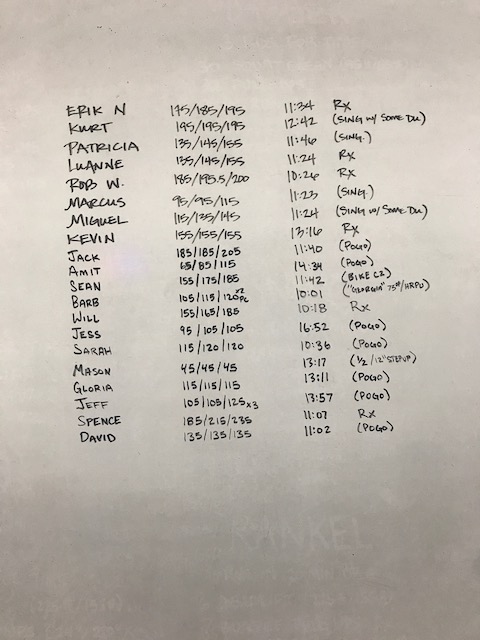 ERIK N 175/185/195 11:34 RX
KURT 195/195/195 12:42 (SING w/ SOME DU)
PATRICIA 135/145/155 11:46 (SING.)
LUANNE 135/145/155 11:24 RX
ROB W. 185/195.5/200 10:26 RX
MARCUS 95/95/115 11:23 (SING.)
MIGUEL 115/135/145 11:24 (SING w/ SOME DU)
KEVIN 155/155/155 13:16 RX
JACK 185/185/205 11:40 (POGO)
AMIT 65/85/115 14:34 (POGO)
SEAN 155/175/185 11:42 (BIKE C2)
BARB 105/115/120 x2 PL 10:01 ("GEORGIA" 75#/HRPU)
WILL 155/165/185 10:18 RX
JESS 95/105/105 16:52 (POGO)
SARAH 115/120/120 10:36 (POGO)
MASON 45/45/45 13:17 (1/2 /12" STEPUP)
GLORIA 115/115/115 13:11 (POGO)
JEFF 105/105/125 x3 13:57 (POGO)
SPENCE 185/215/235 11:07 RX
DAVID 135/135/135 11:02 (POGO)
RANKEL